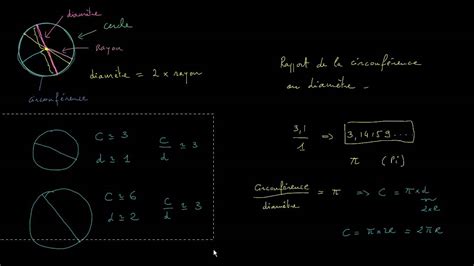 diamètre
cercle
rayon
diamètre = 2 × rayon
circonférence
C ≃ 3
d ≃ 1
C/d ≃ 3
C ≃ 6
d ≃ 2
C/d ≃ 3
Rapport de la circonférence
au diamètre.
3,1/1 ⇒ 3,14159...
π (Pi)
circonférence/diamètre = π ⇒ C = π×d
2×R
C = π×2R = 2πR